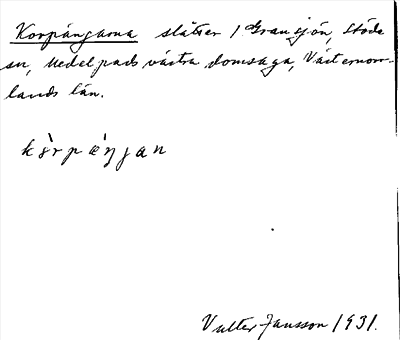 Korpängarna slåtter i Gransjön, Stöde
sn, Medelpads västra domsaga, Västernorr-
lands län.
kò̀rpæ̀ŋjan
Valter Jansson 1931.